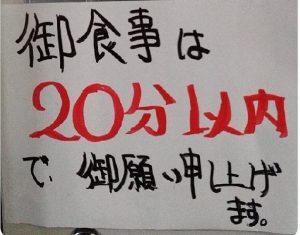 御食事は
20分以内
で、御願い申上げ
ます。